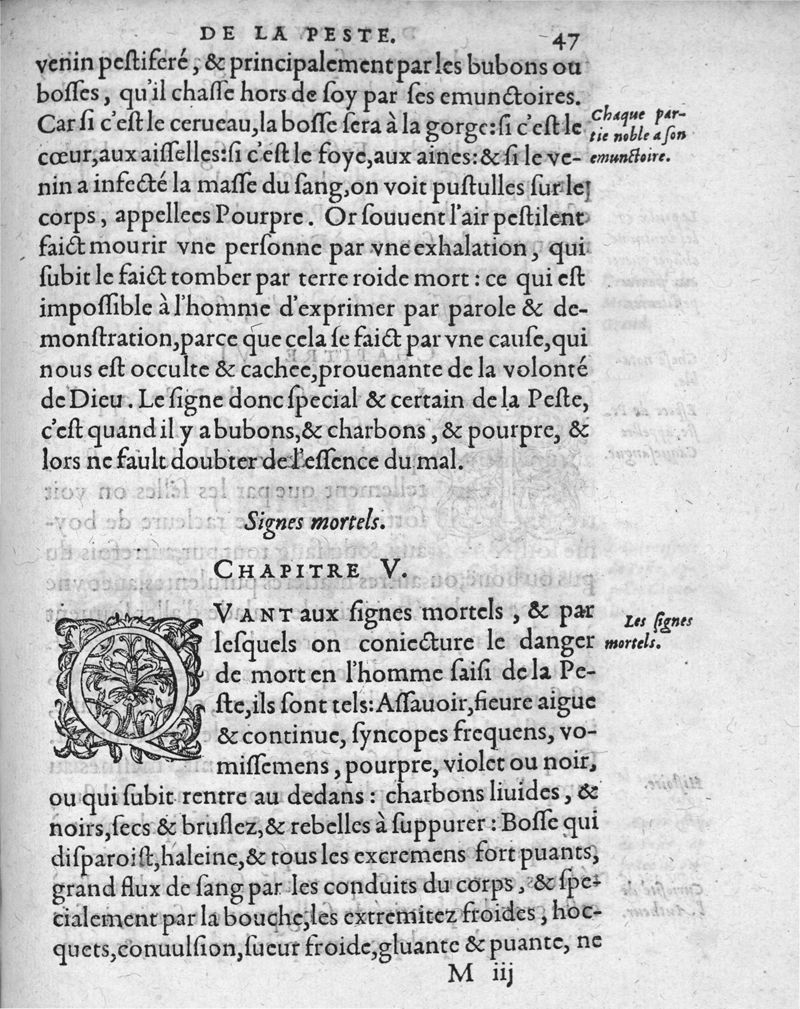 DE LA PESTE. 47
venin peſtiferé, & principalement par les bubons ou
boſſes, qu'il chaſſe hors de ſoy par ſes emunctoires.
Car ſi c'eſt le cerueau, la boſſe ſera à la gorge: ſi c'eſt le
cœur, aux aiſſelles: ſi c'eſt le foye, aux aines: & ſi le ve-
nin a infecté la maſſe du ſang, on voit puſtulles ſur le
corps, appellees Pourpre. Or ſouuent l'air peſtilent
faict mourir vne perſonne par vne exhalation, qui
ſubit le faict tomber par terre roide mort: ce qui eſt
impoſſible à l'homme d'exprimer par parole & de-
monſtration, parce que cela ſe faict par vne cauſe, qui
nous eſt occulte & cachee, prouenante de la volonté
de Dieu. Le ſigne donc ſpecial & certain de la Peſte,
c'eſt quand il y a bubons, & charbons, & pourpre, &
lors ne fault doubter de l'eſſence du mal.
Chaque par-
tie noble a ſon
emunctoire.
Signes mortels.
CHAPITRE V.
QVANT aux ſignes mortels, & par
leſquels on coniecture le danger
de mort en l'homme ſaiſi de la Pe-
ſte, ils ſont tels: Aſſauoir, fieure aigue
& continue, ſyncopes frequens, vo-
miſſemens, pourpre, violet ou noir,
ou qui ſubit rentre au dedans: charbons liuides, &
noirs, ſecs & bruſlez, & rebelles à ſuppurer: Boſſe qui
diſparoiſt, haleine, & tous les excremens fort puants,
grand flux de ſang par les conduits du corps, & ſpe-
cialement par la bouche, les extremitez froides, hoc-
quets, conuulſion, ſueur froide, gluante & puante, ne
Les ſignes
mortels.
M iij